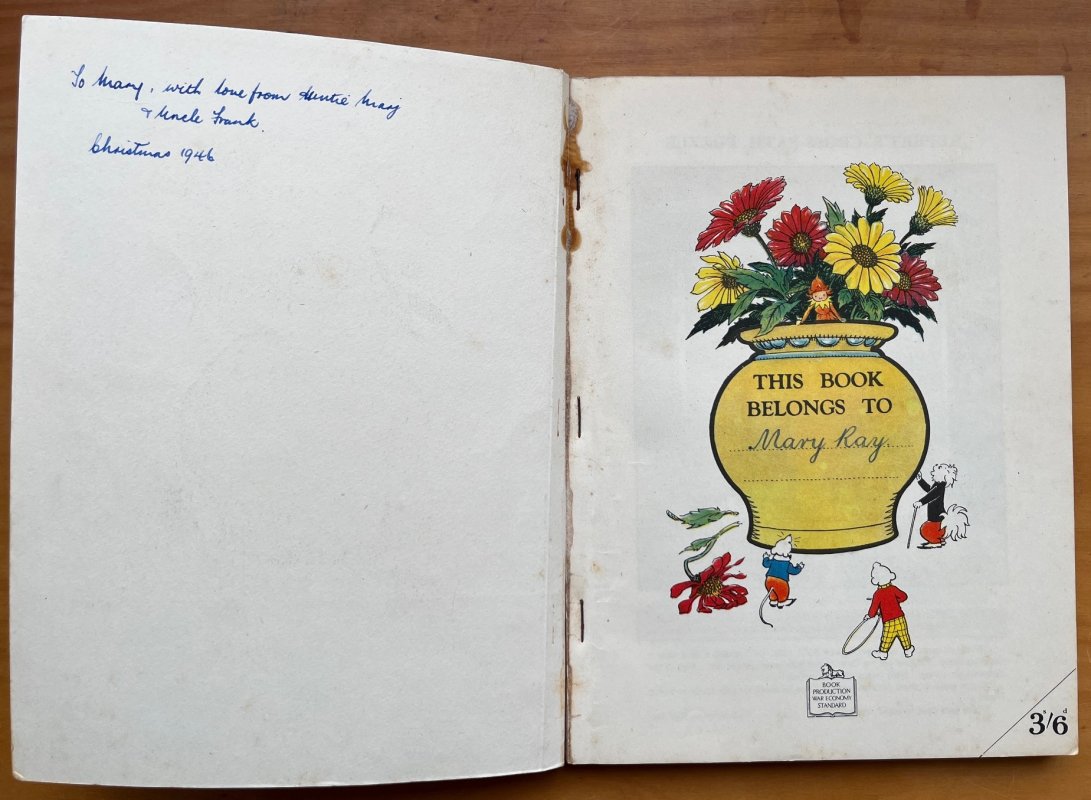 To Mary, with love from Auntie Marj
& Uncle Frank.
Christmas 1946
THIS BOOK
BELONGS TO
Mary Ray
BOOK
PRODUCTION
WAR ECONOMY
STANDARD
3s/6d